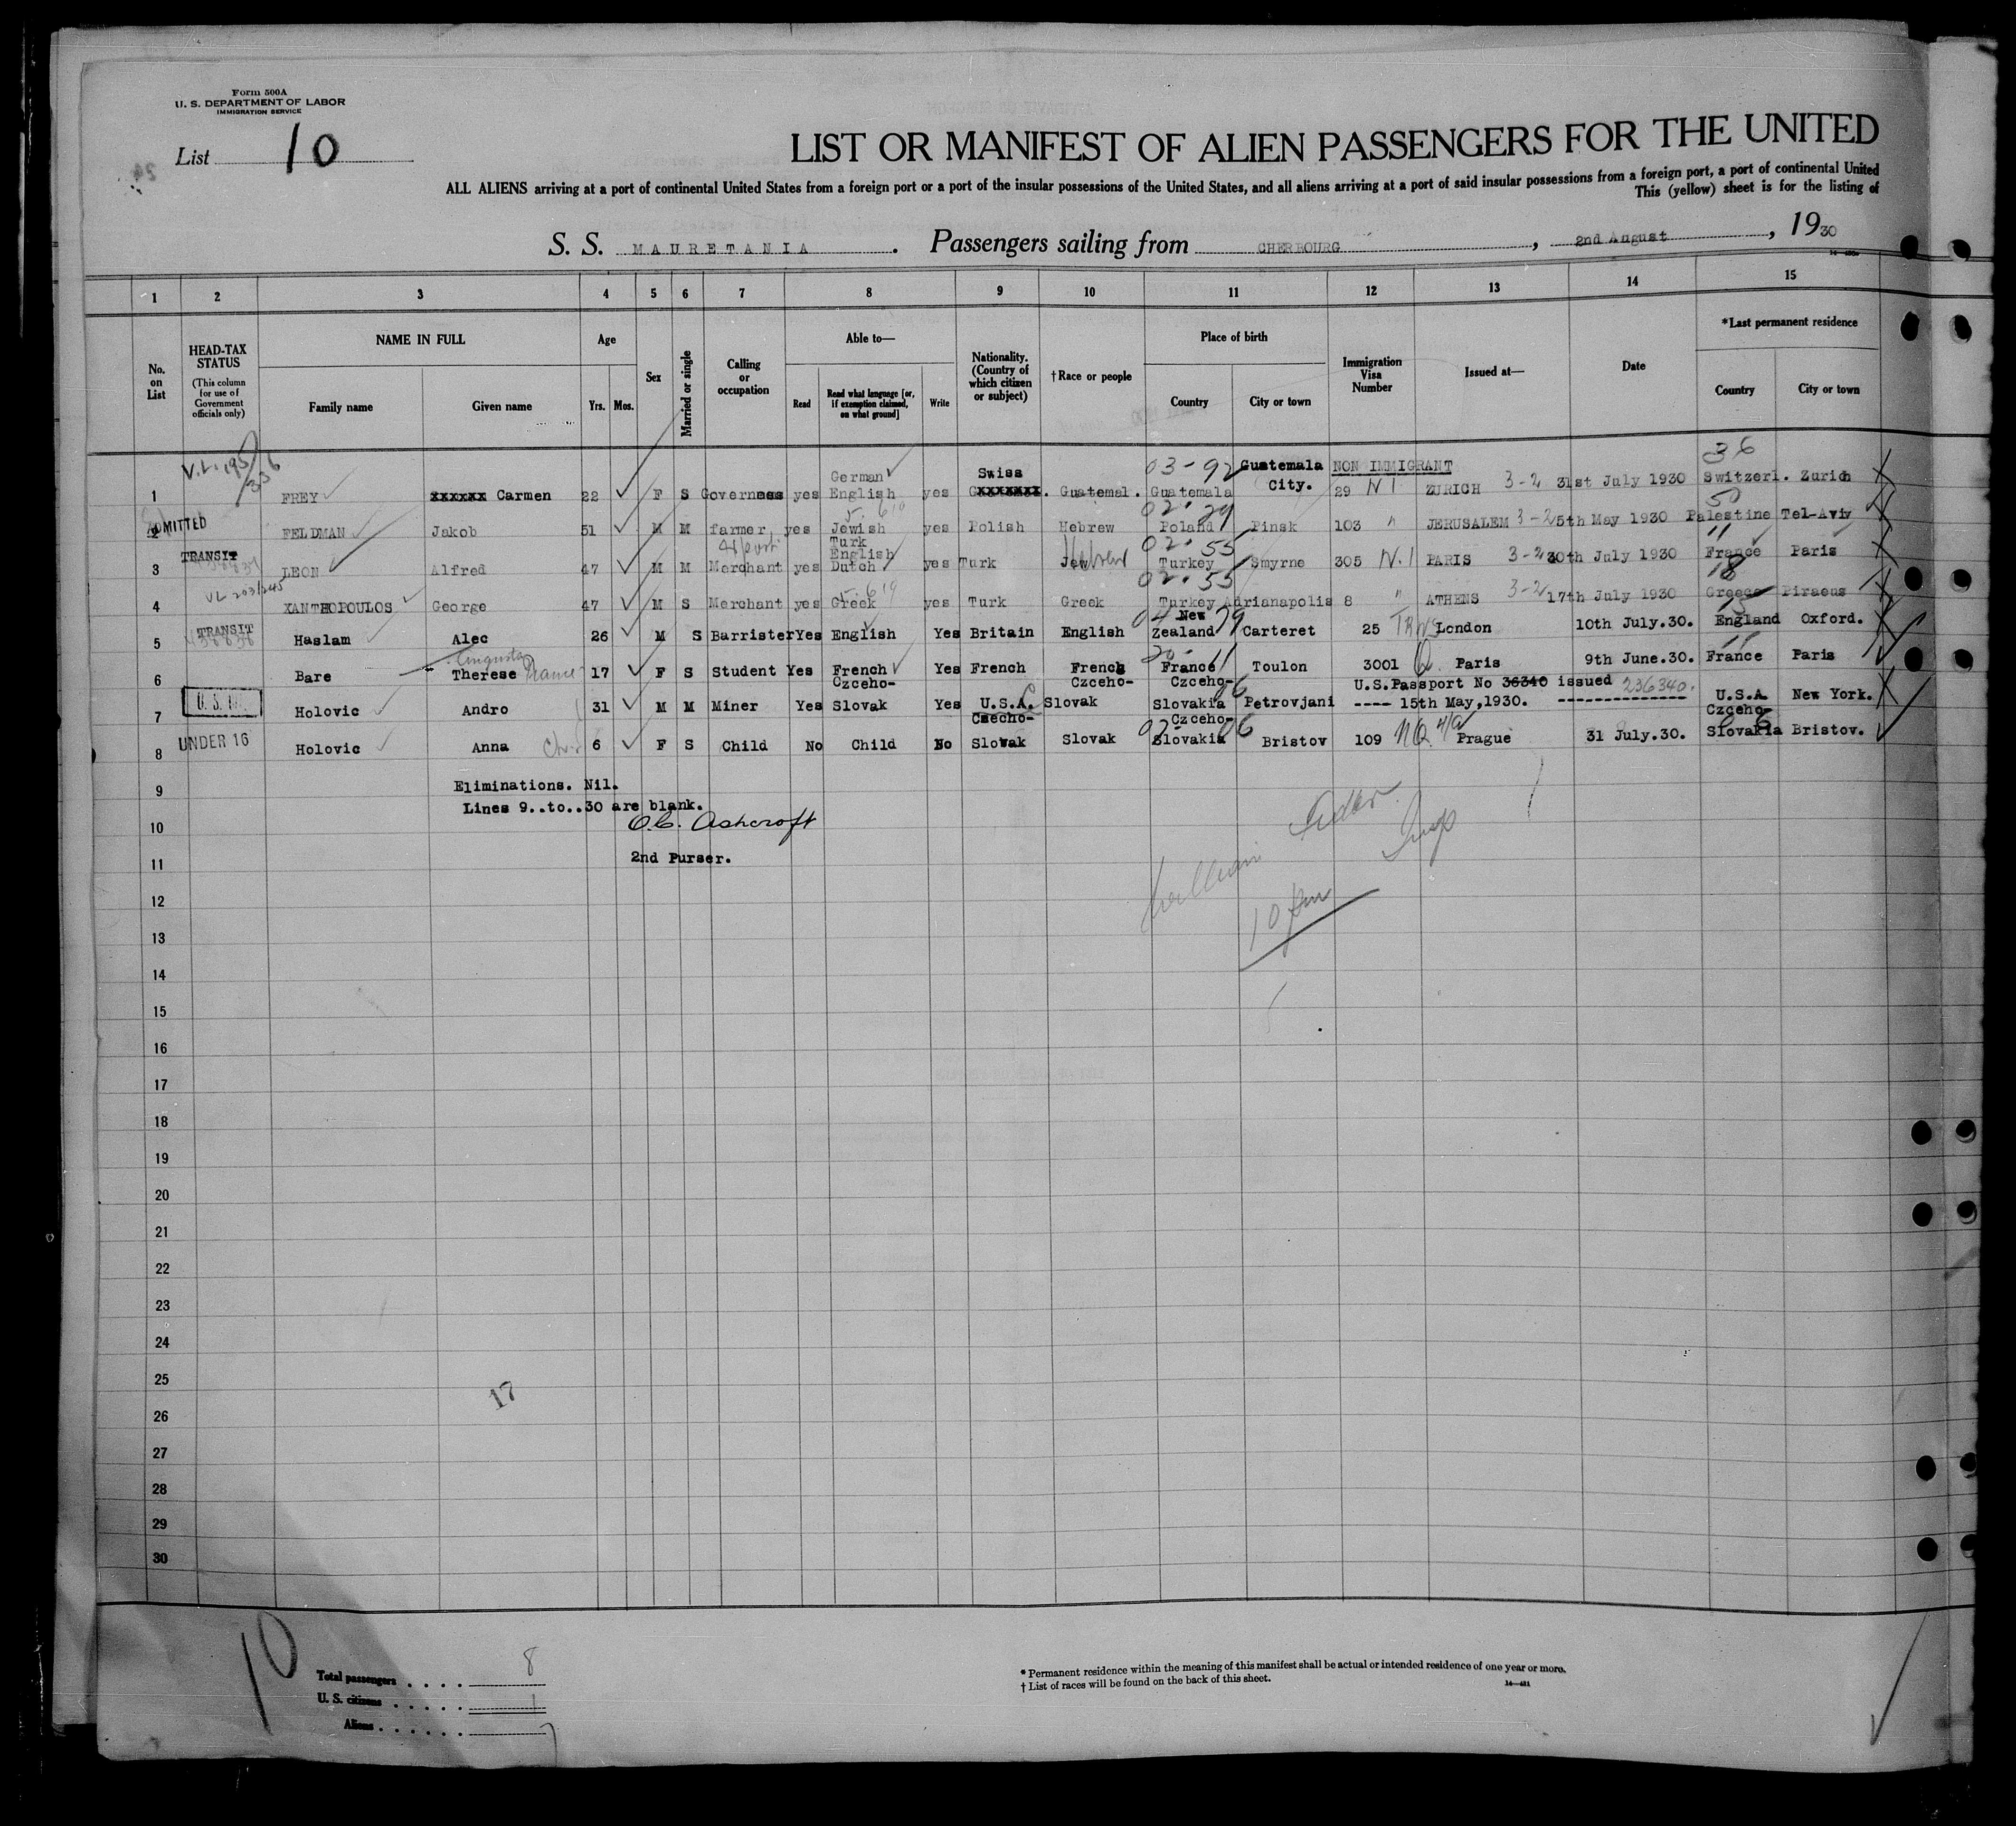 Form 500A
U. S. DEPARTMENT OF LABOR
IMMIGRATION SERVICE
List 10
LIST OR MANIFEST OF ALIEN PASSENGERS FOR THE UNITED
ALL ALIENS arriving at a port of continental United States from a foreign port or a port of the insular possessions of the United States, and all aliens arriving at a port of said insular possessions from a foreign port, a port of continental United
This (yellow) sheet is for the listing of
S. S. MAURETANIA. Passengers sailing from CHERBOURG, 2nd August, 1930
1 2 3 4 5 6 7 8 9 10 11 12 13 14 15
No. on List
HEAD-TAX STATUS
(This column for use of Government officials only)
NAME IN FULL
Family name Given name
Age
Yrs. Mos.
Sex
Married or single
Calling or occupation
Able to—
Read Read what language [or, if exemption claimed, on what ground] Write
Nationality. (Country of which citizen or subject)
† Race or people
Place of birth
Country City or town
Immigration Visa Number
Issued at—
Date
*Last permanent residence
Country City or town
V.L. 195/336 German Swiss 03-92 Guatemala NON IMMIGRANT 36
1 FREY xxxxxx Carmen 22 F S Governess yes English yes Gxxxxxxx. Guatemal. Guatemala City. 29 N I ZURICH 3-2 31st July 1930 Switzerl. Zurich
ADMITTED 5.610 02.29 50
2 FELDMAN Jakob 51 M M farmer yes Jewish yes Polish Hebrew Poland Pinsk 103 " JERUSALEM 3-2 5th May 1930 Palestine Tel-Aviv
TRANSIT Turk English Hebrew 02.55 11
3 LEON Alfred 47 M M Merchant yes Dutch yes Turk Jew Turkey Smyrne 305 N.I PARIS 3-2 30th July 1930 France Paris
VL 203/245 5.619 02.55 18
4 XANTHOPOULOS George 47 M S Merchant yes Greek yes Turk Greek Turkey Adrianapolis 8 " ATHENS 3-2 17th July 1930 Greece Piraeus
TRANSIT 04 New 79 15
5 Haslam Alec 26 M S Barrister Yes English Yes Britain English Zealand Carteret 25 TRNS London 10th July.30. England Oxford.
Augusta 11 11
6 Bare Therese 17 F S Student Yes French Yes French French France Toulon 3001 Q Paris 9th June.30. France Paris
U. S. Czceho- Czceho- Czceho- 06 U.S.Passport No 36340 issued 236340.
7 Holovic Andro 31 M M Miner Yes Slovak Yes U.S.A. C Slovak Slovakia Petrovjani ---- 15th May,1930. ------------- U.S.A New York.
UNDER 16 Czecho- Czceho- 06 Czceho-
8 Holovic Anna 6 F S Child No Child No Slovak Slovak Slovakia Bristov 109 NQ 4/a Prague 31 July.30. Slovakia Bristov.
9 Eliminations. Nil.
Lines 9..to..30 are blank.
10 O.C. Ashcroft
11 2nd Purser.
William Insp
10 pm
12
13
14
15
16
17
18
19
20
21
22
23
24
25
17
26
27
28
29
30
10
Total passengers . . . . 8
U. S. citizens . . . . . 1
Aliens . . . . . . 7
* Permanent residence within the meaning of this manifest shall be actual or intended residence of one year or more.
† List of races will be found on the back of this sheet.